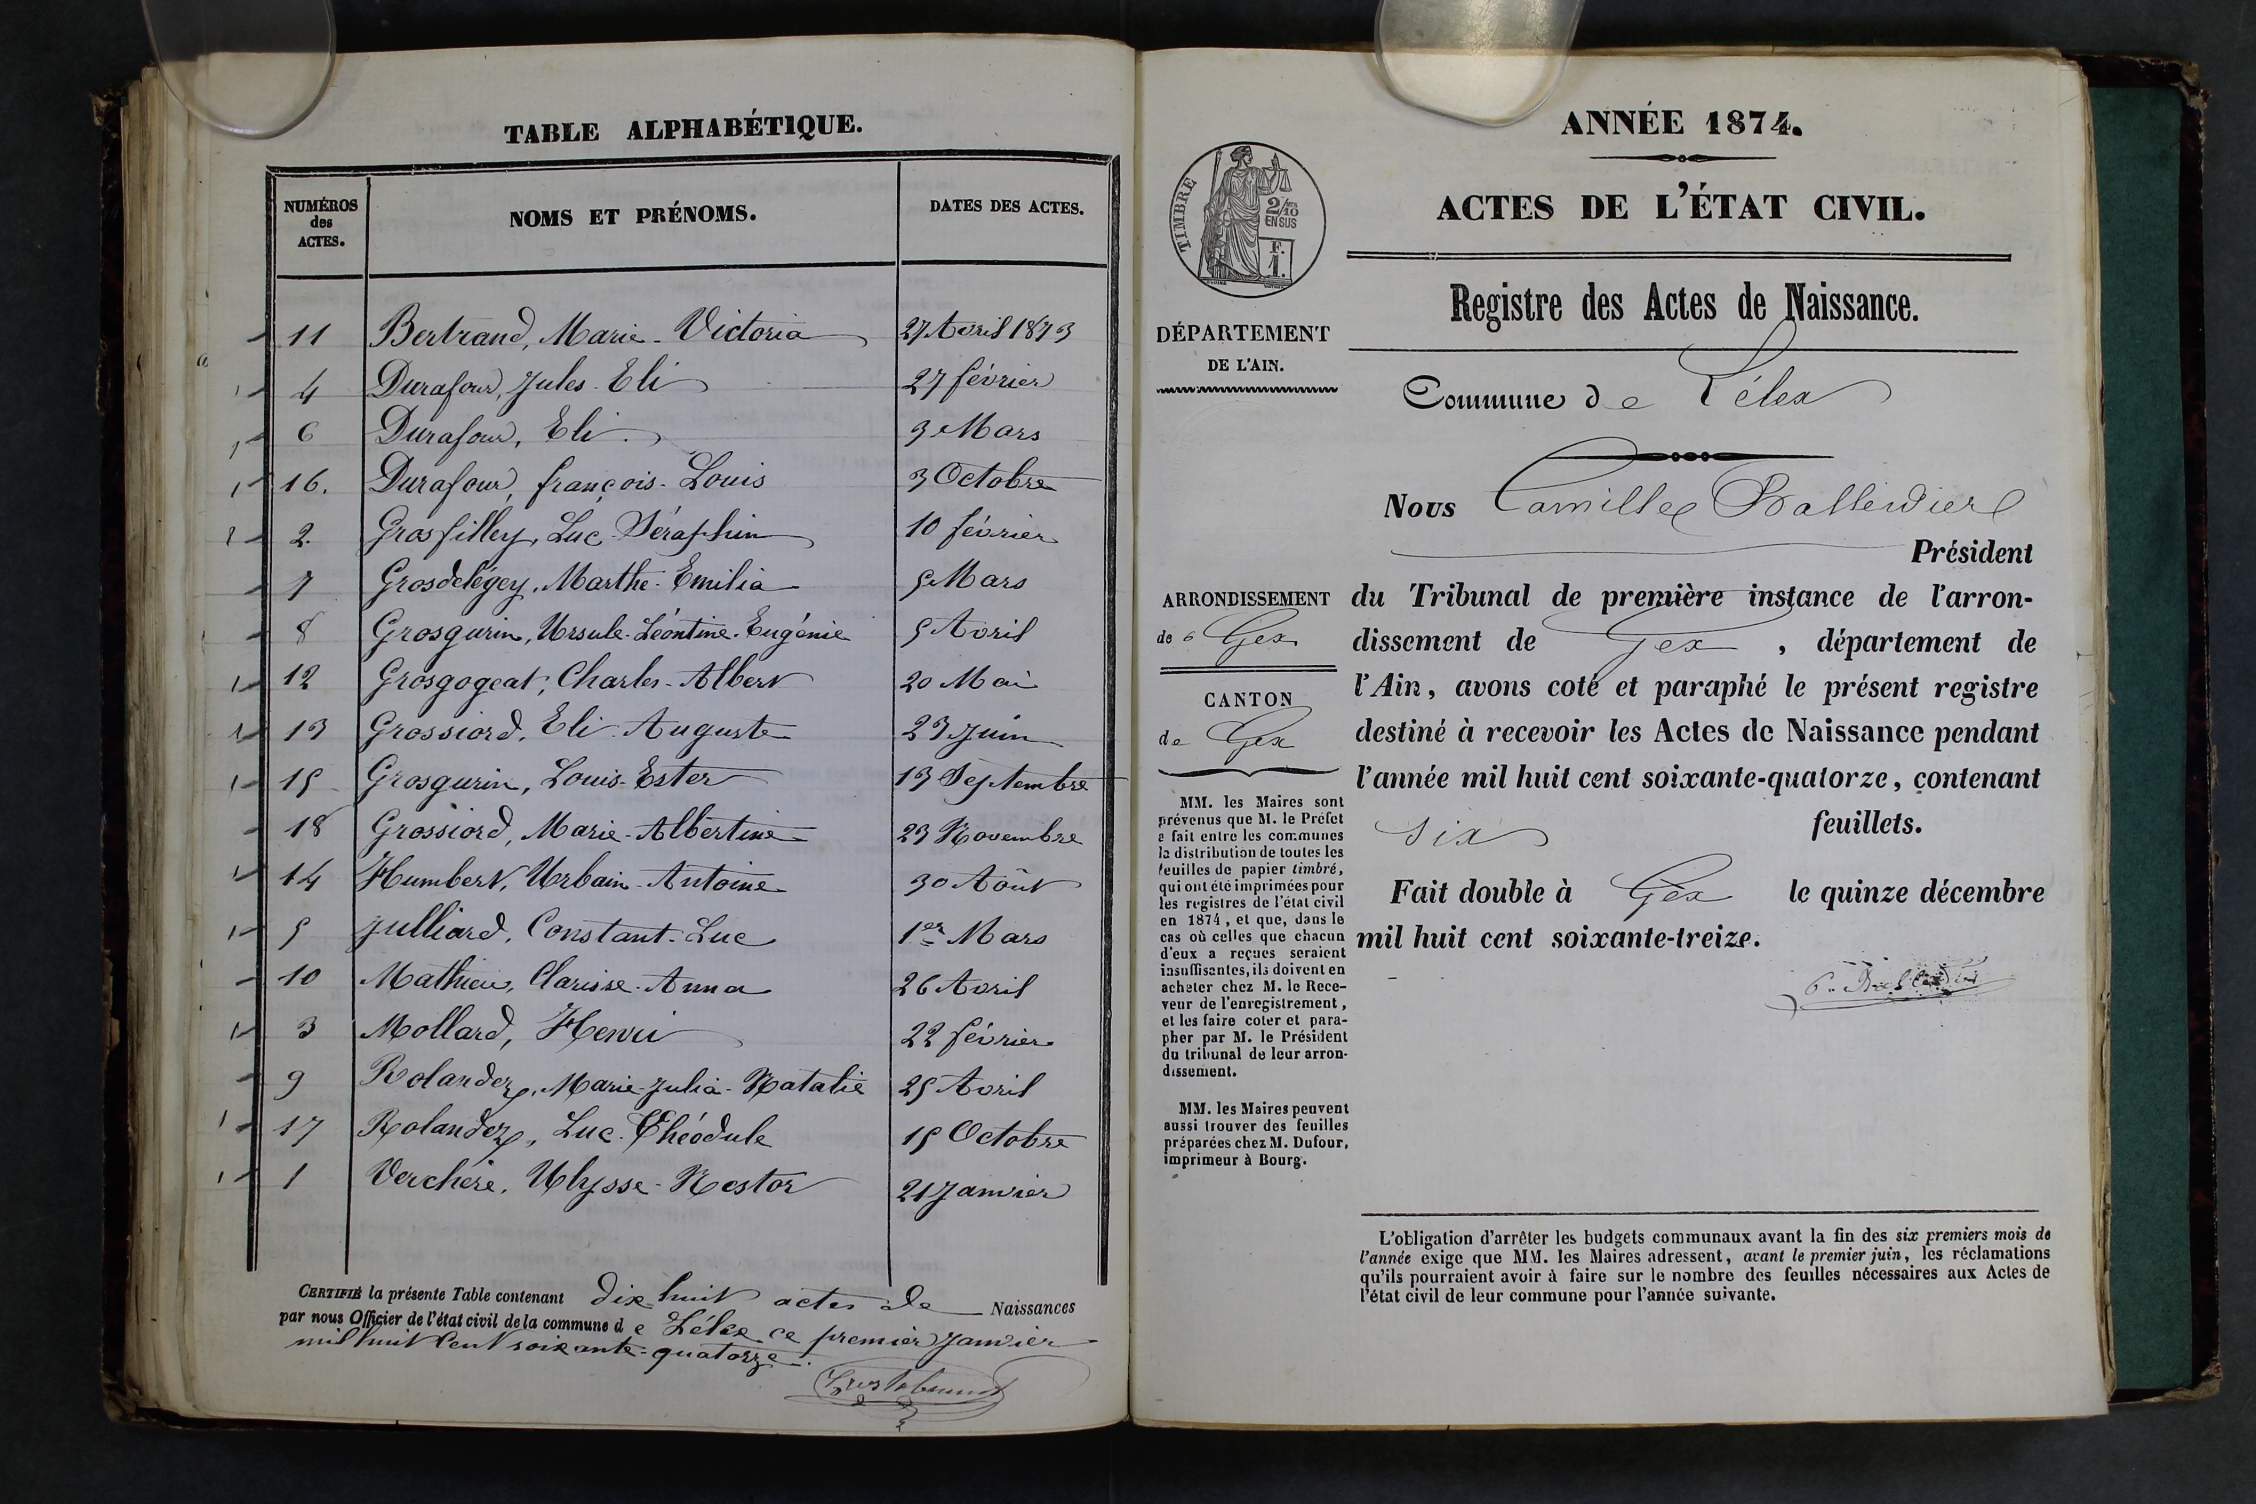 TABLE ALPHABÉTIQUE.
NUMÉROS des ACTES. NOMS ET PRÉNOMS. DATES DES ACTES.
11 Bertrand, Marie-Victoria 27 Avril 1873
4 Durafour, Jules-Eli 27 février
6 Durafour, Eli 3 Mars
16. Durafour, françois-Louis 3 Octobre
2. Grosfilley, Luc-Séraphin 10 février
7 Grosdelégey, Marthe-Emilia 5 Mars
8 Grosgurin, Ursule-Léontine-Eugénie 5 Avril
12 Grosgogeat, Charles-Albert 20 Mai
13 Grossiord, Eli-Auguste 23 Juin
15 Grosgurin, Louis-Ester 13 Septembre
18 Grossiord, Marie-Albertine 23 Novembre
14 Humbert, Urbain-Antoine 30 Août
5 Julliard, Constant-Luc 1er Mars
10 Mathieu, Clarisse-Anna 26 Avril
3 Mollard, Henri 22 février
9 Rolandez, Marie-Julia-Natalie 25 Avril
17 Rolandez, Luc-Théodule 15 Octobre
1 Verchère, Ulysse-Nestor 21 Janvier
CERTIFIÉ la présente Table contenant dix-huit actes de Naissances
par nous Officier de l'état civil de la commune de Lélex ce premier Janvier
mil huit cent soixante-quatorze.
ANNÉE 1874.
ACTES DE L'ÉTAT CIVIL.
TIMBRE
2/10
EN SUS
F.
1.
Registre des Actes de Naissance.
DÉPARTEMENT
DE L'AIN.
Commune de Lélex
Nous Camille Balleidier
Président
du Tribunal de première instance de l'arron-
dissement de Gex, département de
l'Ain, avons coté et paraphé le présent registre
destiné à recevoir les Actes de Naissance pendant
l'année mil huit cent soixante-quatorze, contenant
six feuillets.
Fait double à Gex le quinze décembre
mil huit cent soixante-treize.
ARRONDISSEMENT
de Gex
CANTON
de Gex
MM. les Maires sont
prévenus que M. le Préfet
a fait entre les communes
la distribution de toutes les
feuilles de papier timbré,
qui ont été imprimées pour
les registres de l'état civil
en 1874, et que, dans le
cas où celles que chacun
d'eux a reçues seraient
insuffisantes, ils doivent en
acheter chez M. le Rece-
veur de l'enregistrement,
et les faire coter et para-
pher par M. le Président
du tribunal de leur arron-
dissement.
MM. les Maires peuvent
aussi trouver des feuilles
préparées chez M. Dufour,
imprimeur à Bourg.
L'obligation d'arrêter les budgets communaux avant la fin des six premiers mois de
l'année exige que MM. les Maires adressent, avant le premier juin, les réclamations
qu'ils pourraient avoir à faire sur le nombre des feuilles nécessaires aux Actes de
l'état civil de leur commune pour l'année suivante.